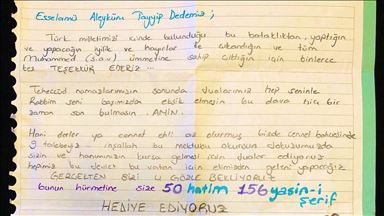 Esselamü Aleyküm Tayyip Dedemiz;
Türk milletimizi içinde bulunduğu bu bataklıktan, yaptığın
ve yapacağın iyilik ve hayırlar ile çıkardığın ve tüm
Muhammed (s.a.v) ümmetine sahip çıktığın için binlerce
kez TEŞEKKÜR EDERİZ ...
Teheccüd namazlarımızın sonunda dualarımız hep seninle
Rabbim seni başımızdan eksik etmesin bu dava hiç bir
zaman son bulmasın AMİN.
Hani derler ya cennet ehli az olurmuş bizde cennet bahçesinde
9 talebeyiz inşallah bu mektubu okursun
sizin ve hanımınızın buraya gelmesi için dualar ediyoruz
hepimiz bu devlet bu vatan için elimizden geleni yapacağız
GERÇEKTEN SİZİ GÖZLE BEKLİYORUZ
bunun hürmetine size 50 hatim 156 yasin-i
şerif
HEDİYE EDİYORUZ